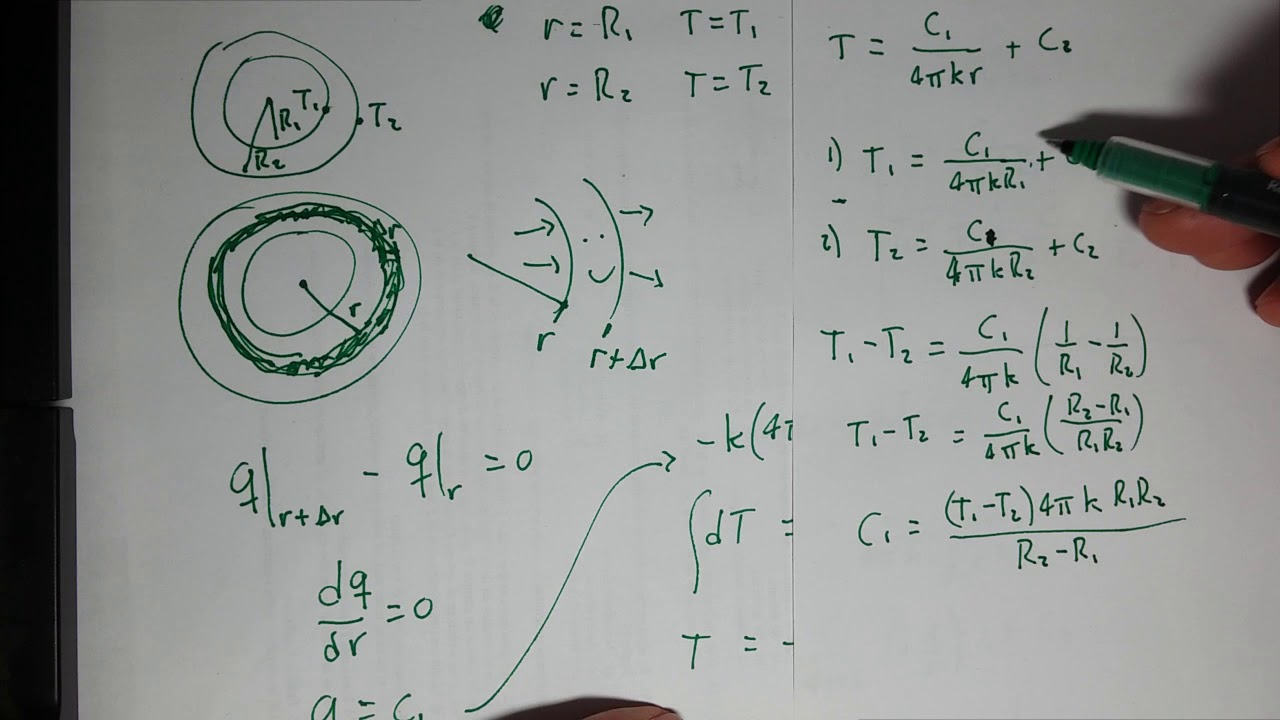 r = R₁ T = T₁
r = R₂ T = T₂
T₁
R₁
R₂
T₂
r
r
r
r+Δr
q|r+Δr - q|r = 0
dq/dr = 0
q = C₁
-k(4π
∫dT =
T = -
T = C₁/4πkr + C₂
1) T₁ = C₁/4πkR₁ +
2) T₂ = C₁/4πkR₂ + C₂
T₁-T₂ = C₁/4πk (1/R₁ - 1/R₂)
T₁-T₂ = C₁/4πk (R₂-R₁/R₁R₂)
C₁ = (T₁-T₂)4πk R₁R₂/R₂-R₁